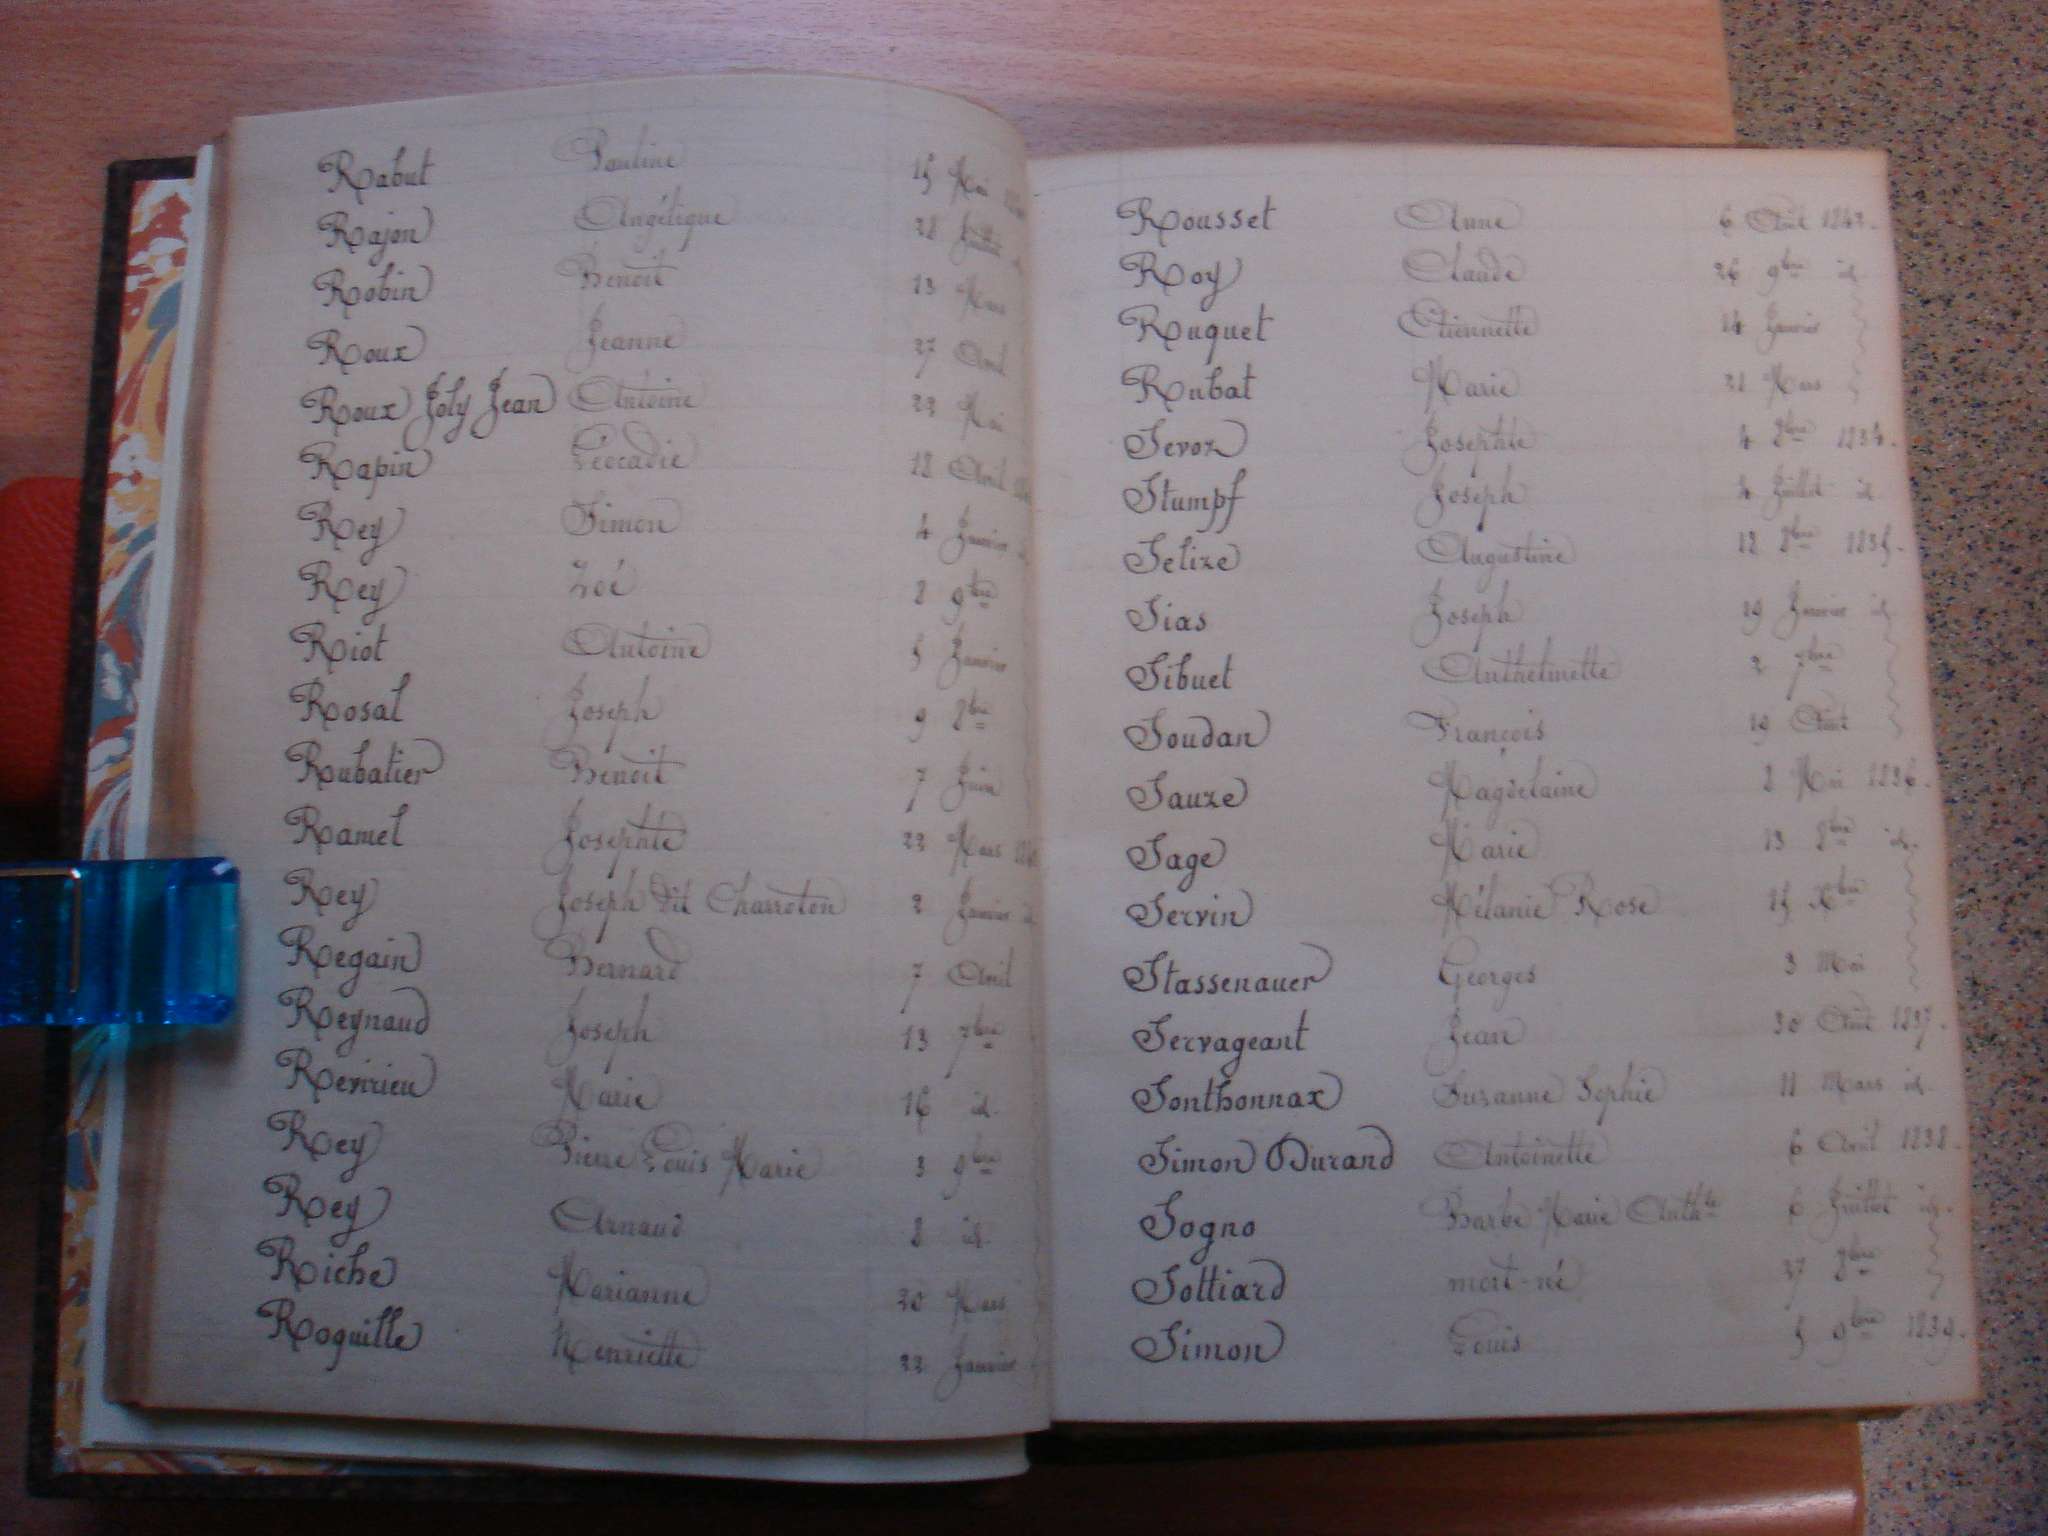 Rabut Pauline 15 Mai
Rajon Angélique 28 Juillet
Robin Benoit 13 Mars
Roux Jeanne 27 Avril
Roux Joly Jean Antoine 23 Mai
Rapin Léocadie 18 Avril
Rey Simon 4 Janvier id
Rey Zoé 8 9bre
Riot Antoine 5 Janvier
Rosal Joseph 9 8bre
Rubatier Benoit 7 Juin
Ramel Josephte 23 Mars
Rey Joseph dit Charroton 2 Janvier id
Regain Bernard 7 Avril
Reynaud Joseph 13 7bre
Revirieu Marie 16 id.
Rey Pierre Louis Marie 3 9bre
Rey Arnaud 8 id.
Riche Marianne 30 Mars
Roguille Henriette 22 Janvier
Rousset Anne 6 Avril
Roy Claude 26 9bre id
Ruquet Etiennette 14 Janvier
Rubat Marie 21 Mars
Sevoz Josephte 4 8bre 1834.
Stumpf Joseph 4 Juillet id
Selize Augustine 18 8bre 1835.
Sias Joseph 29 Janvier id
Sibuet Anthelmette 2 7bre
Soudan François 19 Aout
Sauze Magdelaine 8 Mai 1836.
Sage Marie 13 8bre id.
Servin Mélanie Rose 15 Xbre
Stassenauer Georges 3 Mai
Servageant Jean 30 Aout 1837.
Sonthonnax Suzanne Sophie 11 Mars id.
Simon Durand Antoinette 6 Avril 1838.
Sogno Barbe Marie Anthte 6 Juillet id.
Sottiard mort-né 27 8bre
Simon Louis 5 9bre 1839.